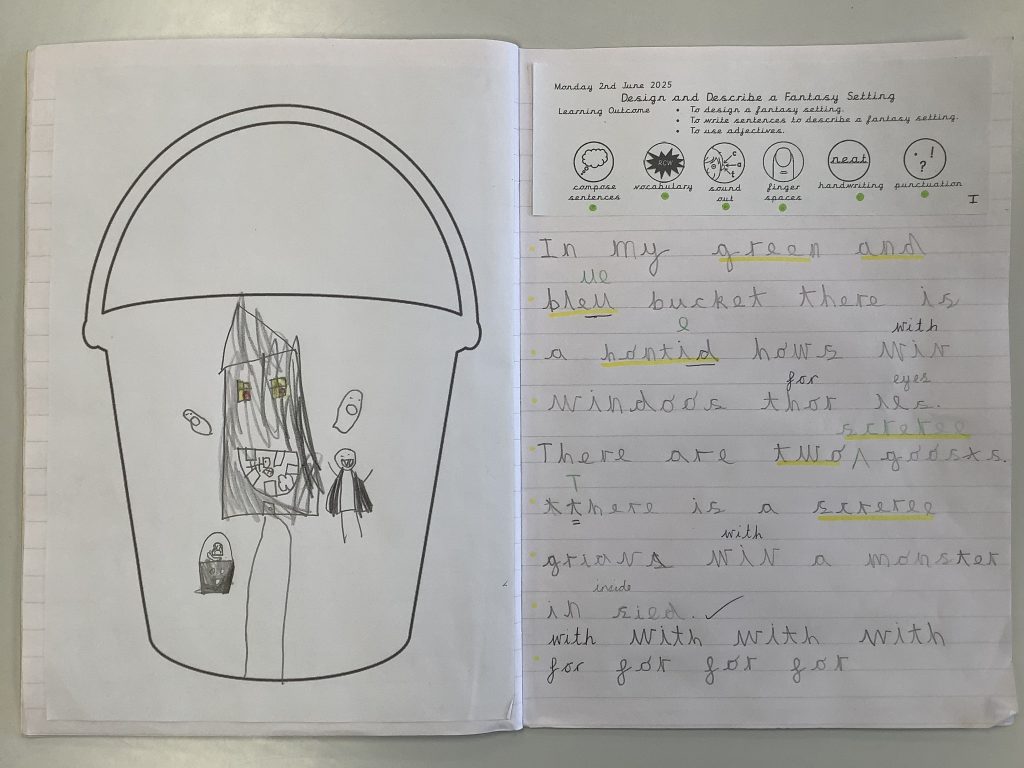 Monday 2nd June 2025
Design and Describe a Fantasy Setting
Learning Outcome • To design a fantasy setting.
• To write sentences to describe a fantasy setting.
• To use adjectives.
RCW
c
a
t
neat
. !
?
compose sentences
vocabulary
sound out
finger spaces
handwriting
punctuation
I
In my green and
ue
bleu bucket there is
e with
a hontid hows wiv
for eyes
windoos thor ies.
screree
There are two ^ goosts.
T
tthere is a screree
with
griavs wiv a monster
inside
in sied. ✓
with with with with
for for for for